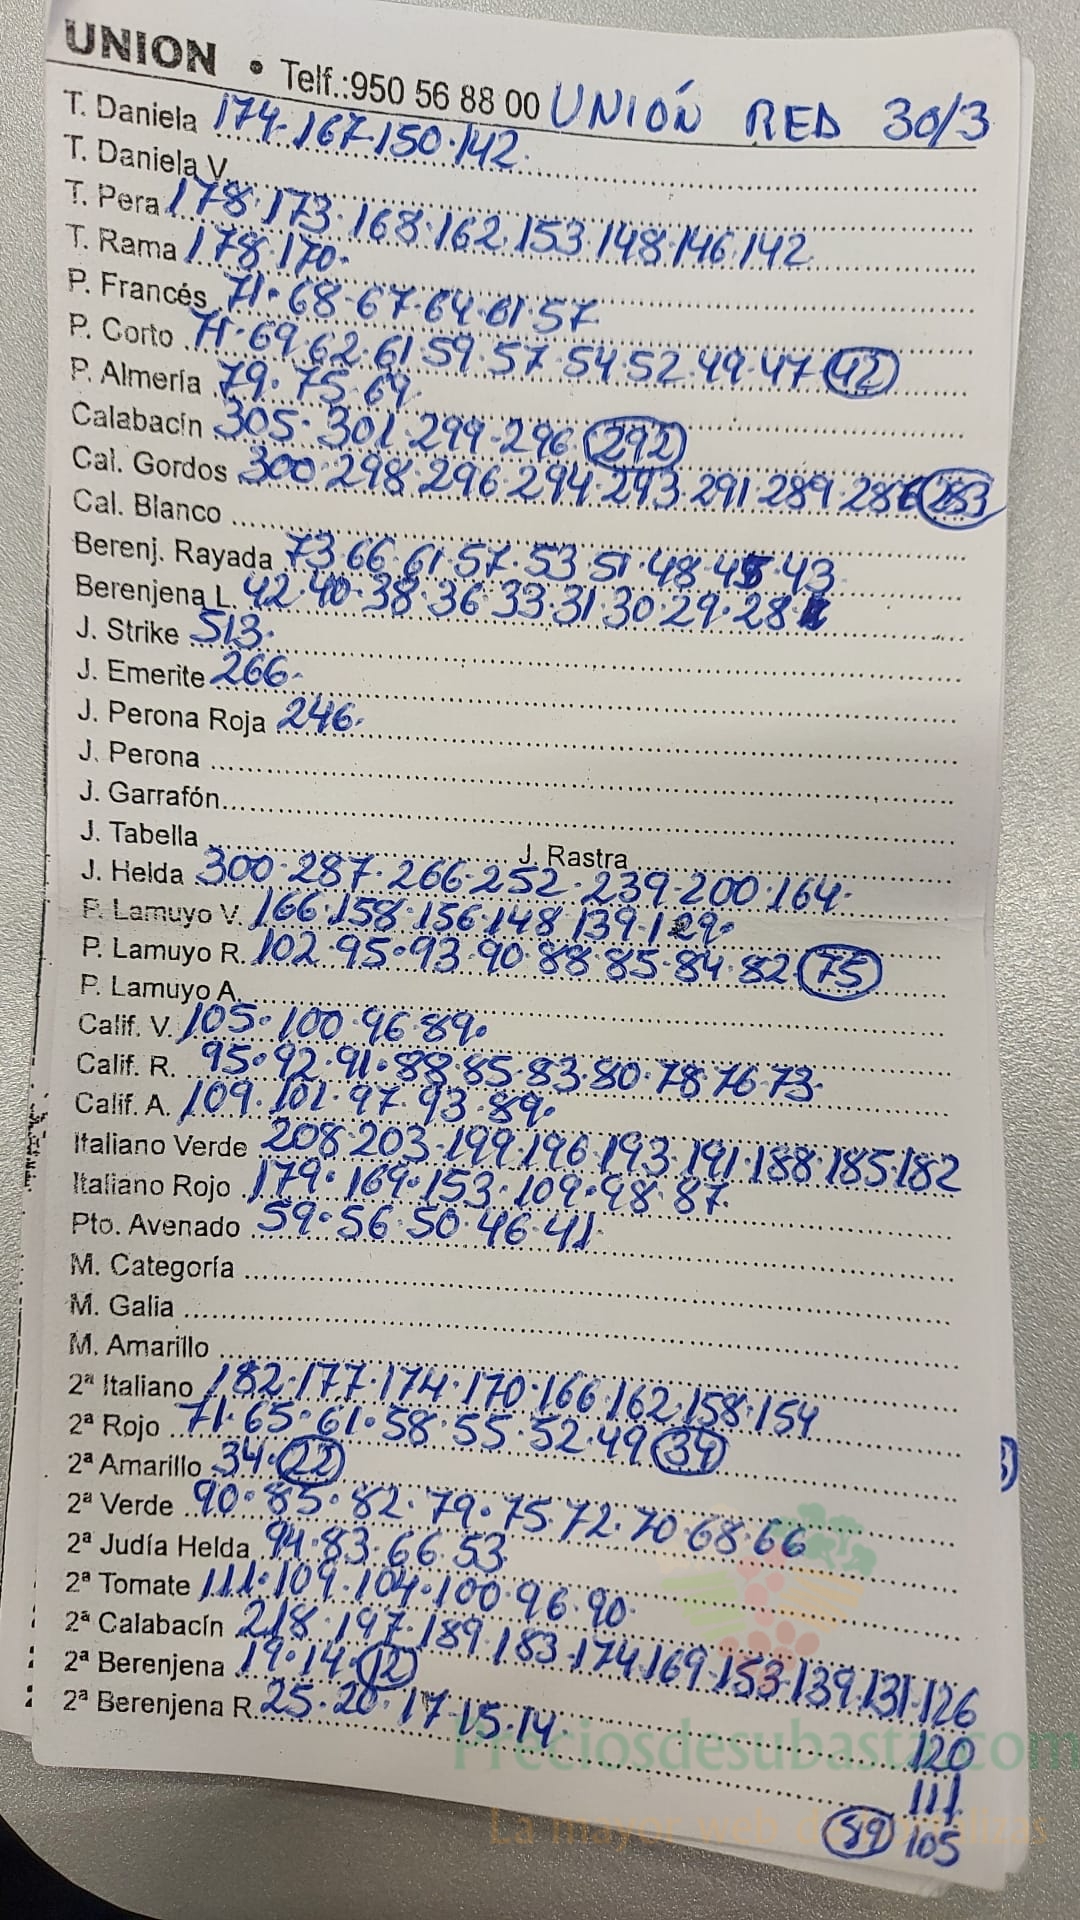 UNION • Telf.:950 56 88 00 UNIÓN RED 30/3
T. Daniela 174·167·150·142·
T. Daniela V.
T. Pera 178·173·168·162·153·148·146·142
T. Rama 178·170·
P. Francés 71·68·67·64·61·57
P. Corto 71·69·62·61·59·57·54·52·49·47 42
P. Almería 79·75·69
Calabacín 305·301·299·296· 292
Cal. Gordos 300·298·296·294·293·291·289·286 283
Cal. Blanco
Berenj. Rayada 73·66·61·57·53·51·48·45·43
Berenjena L. 42·40·38·36·33·31·30·29·28·
J. Strike 513·
J. Emerite 266·
J. Perona Roja 246·
J. Perona
J. Garrafón
J. Tabella J. Rastra
J. Helda 300·287·266·252·239·200·164·
P. Lamuyo V. 166·158·156·148·139·129·
P. Lamuyo R. 102·95·93·90·88·85·84·82· 75
P. Lamuyo A.
Calif. V. 105·100·96·89·
Calif. R. 95·92·91·88·85·83·80·78·76·73·
Calif. A. 109·101·97·93·89·
Italiano Verde 208·203·199·196·193·191·188·185·182
Italiano Rojo 179·169·153·109·98·87
Pto. Avenado 59·56·50·46·41
M. Categoría
M. Galia
M. Amarillo
2ª Italiano 182·177·174·170·166·162·158·154
2ª Rojo 71·65·61·58·55·52·49 34
2ª Amarillo 34· 22
2ª Verde 90·85·82·79·75·72·70·68·66
2ª Judía Helda 94·83·66·53
2ª Tomate 111·109·104·100·96·90·
2ª Calabacín 218·197·189·183·174·169·153·139·131·126
2ª Berenjena 19·14· 12
2ª Berenjena R. 25·20·17·15·14·
120
Preciosdesubasta.com
111
89 105
La mayor web de